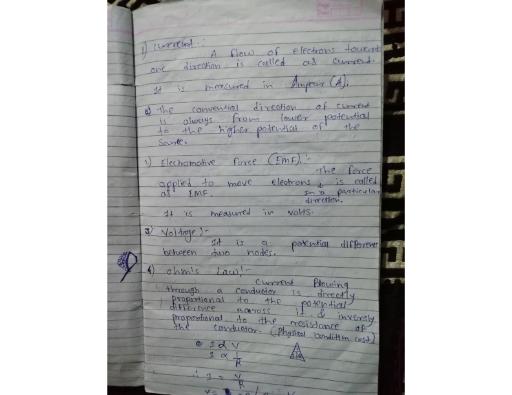 1) Current :-
A flow of electrons toward
one direction is called as current.
It is measured in Ampear (A).
② The convential direction of current
is always from lower potential
to the higher potential of the
Source.
2) Electromotive Force (EMF) :-
The force
applied to move electrons is called
as EMF. in a particular
direction.
It is measured in volts.
3) Voltage :-
It is a potential different
between two nodes.
4) ohm's Law :-
Current flowing
through a conductor is directly
proportional to the potential
difference across it & inversly
proportional to the resistance of
the conductor. (physical condition const)
I ∝ V
I ∝ 1/R
∴ I = V/R